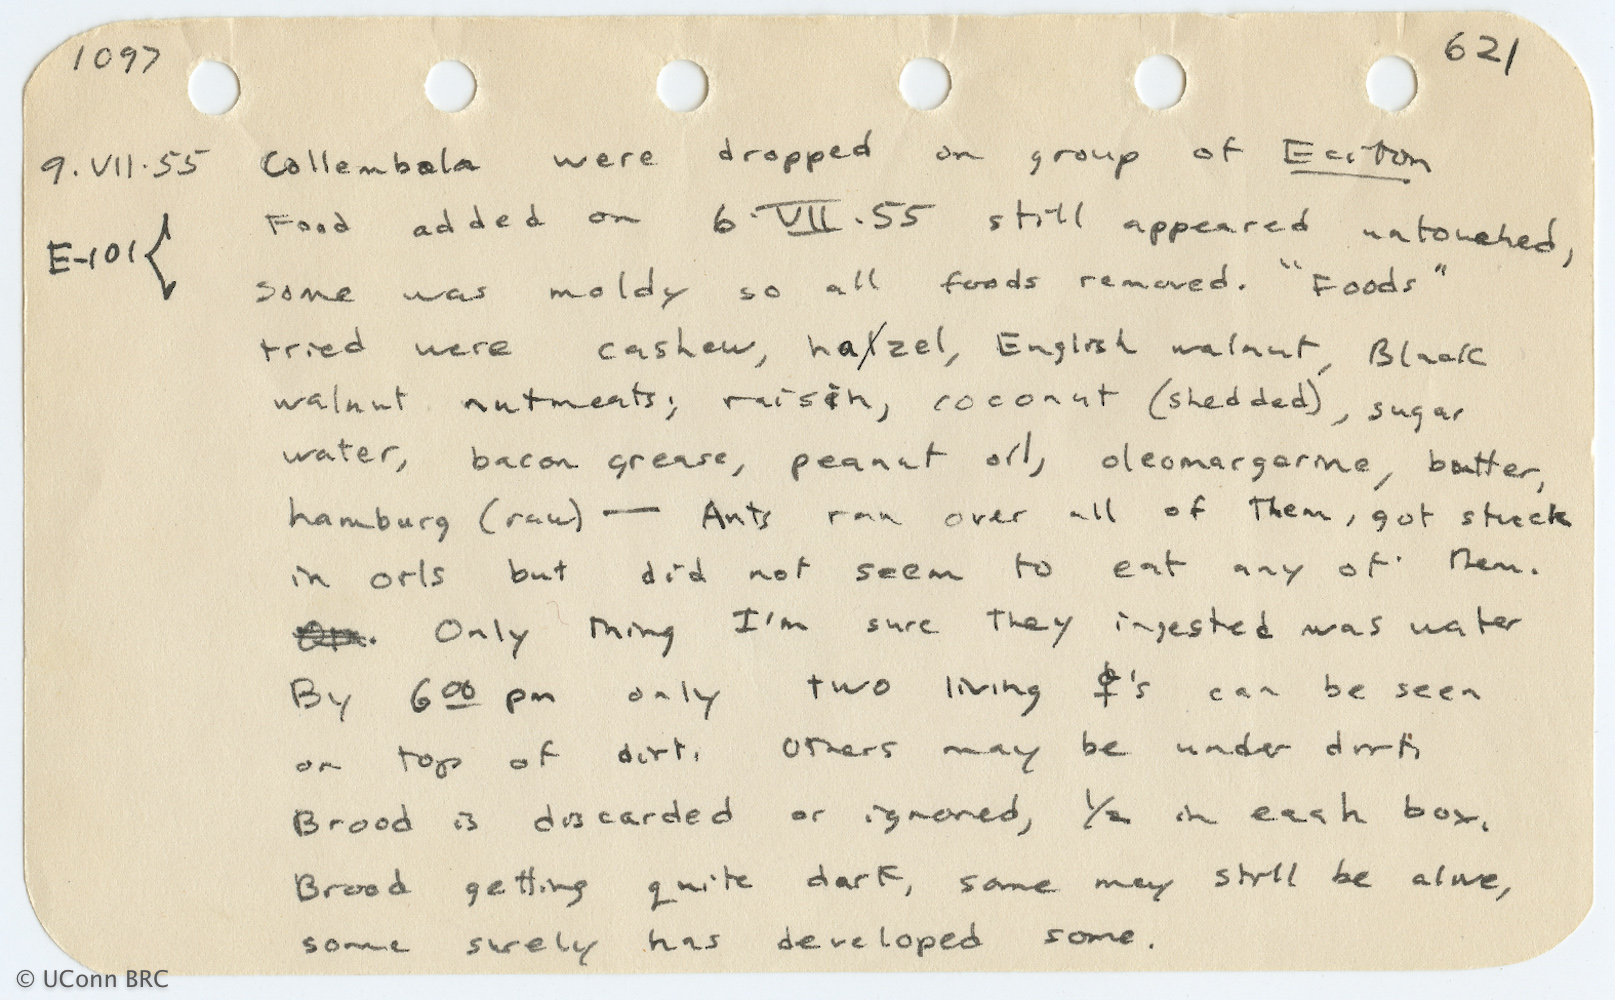 1097 621
9.VII.55 Collembola were dropped on group of Eciton
E-101 { Food added on 6.VII.55 still appeared untouched,
some was moldy so all foods removed. "Foods"
tried were cashew, hazel, English walnut, Black
walnut nutmeats; raisin, coconut (shedded), sugar
water, bacon grease, peanut oil, oleomargarine, butter,
hamburg (raw) — Ants ran over all of them, got stuck
in oils but did not seem to eat any of them.
Only thing I'm sure they ingested was water
By 6 00 pm only two living ☿'s can be seen
on top of dirt. Others may be under dirt.
Brood is discarded or ignored, 1/2 in each box.
Brood getting quite dark, some may still be alive,
some surely has developed some.
© UConn BRC